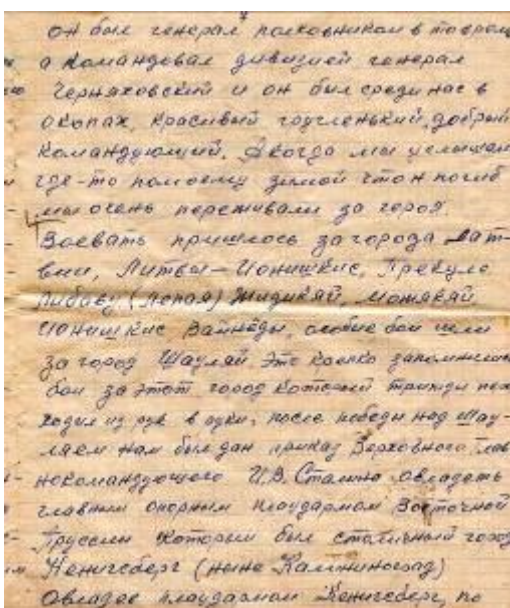 он был генерал полковником в то врем
а командовал дивизией генерал
Черняховский и он был среди нас в
окопах, красивый худенький, добрый
командующий. А когда мы услышали
где-то помоему зимой что н погиб
мы очень переживали за героя.
Воевать пришлось за города Лат-
вии, Литвы – Ионишкис, Прекуле
Либаву (Лепая) Жидикяй, Можякяй
Ионишкис Вайнёды, особые бои шли
за город Шауляй Это крепко запомнились
бои за этот город который трижды пех
ходил из рук в руки, после победы над Шау-
ляем нам был дан приказ Верховного Глав
нокомандующего И.В. Сталина овладеть
главным опорным плацдармом Восточной
Пруссии который был столичный город
Кенигсберг (ныне Калининград)
Овладев плацдармом Кенигсберг, по